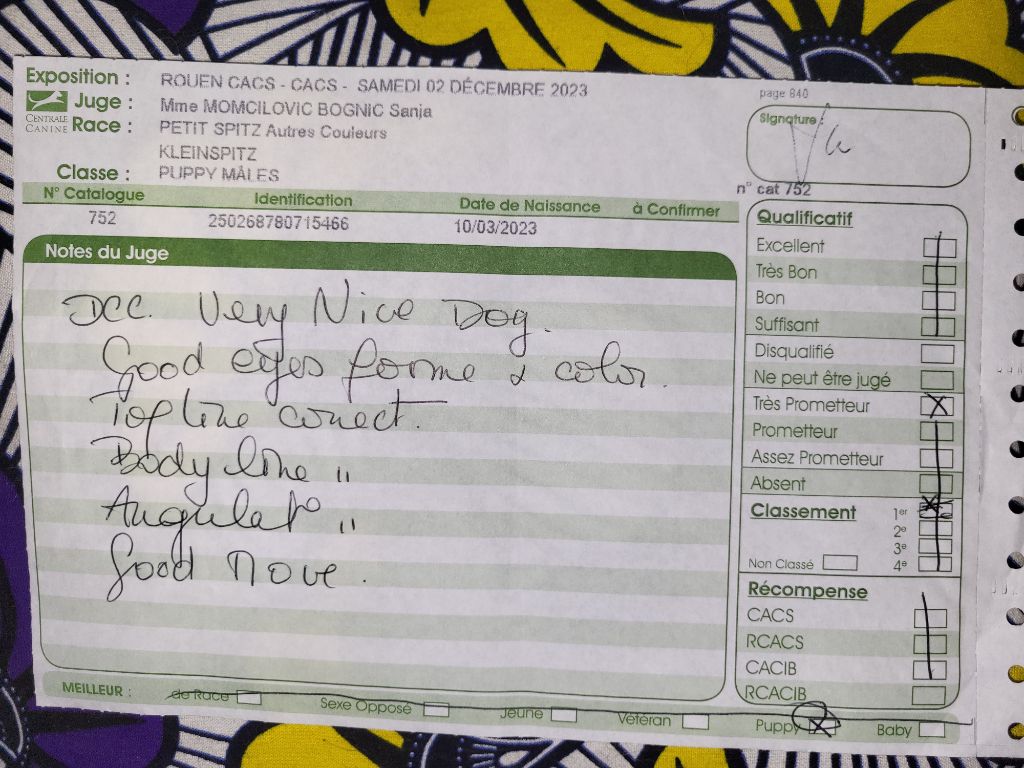 Exposition : ROUEN CACS - CACS - SAMEDI 02 DÉCEMBRE 2023
Juge : Mme MOMCILOVIC BOGNIC Sanja
CENTRALE CANINE
Race : PETIT SPITZ Autres Couleurs
KLEINSPITZ
Classe : PUPPY MÂLES
page 840
Signature :
n° cat 752
N° Catalogue Identification Date de Naissance à Confirmer
752 250268780715466 10/03/2023
Notes du Juge
DCC. Very Nice Dog.
Good eyes forme & color.
Top line correct.
Body line "
Angulat° "
Good move.
Qualificatif
Excellent
Très Bon
Bon
Suffisant
Disqualifié
Ne peut être jugé
Très Prometteur X
Prometteur
Assez Prometteur
Absent
Classement 1er X
2e
3e
Non Classé 4e
Récompense
CACS
RCACS
CACIB
RCACIB
MEILLEUR : de Race Sexe Opposé Jeune Vétéran Puppy X Baby